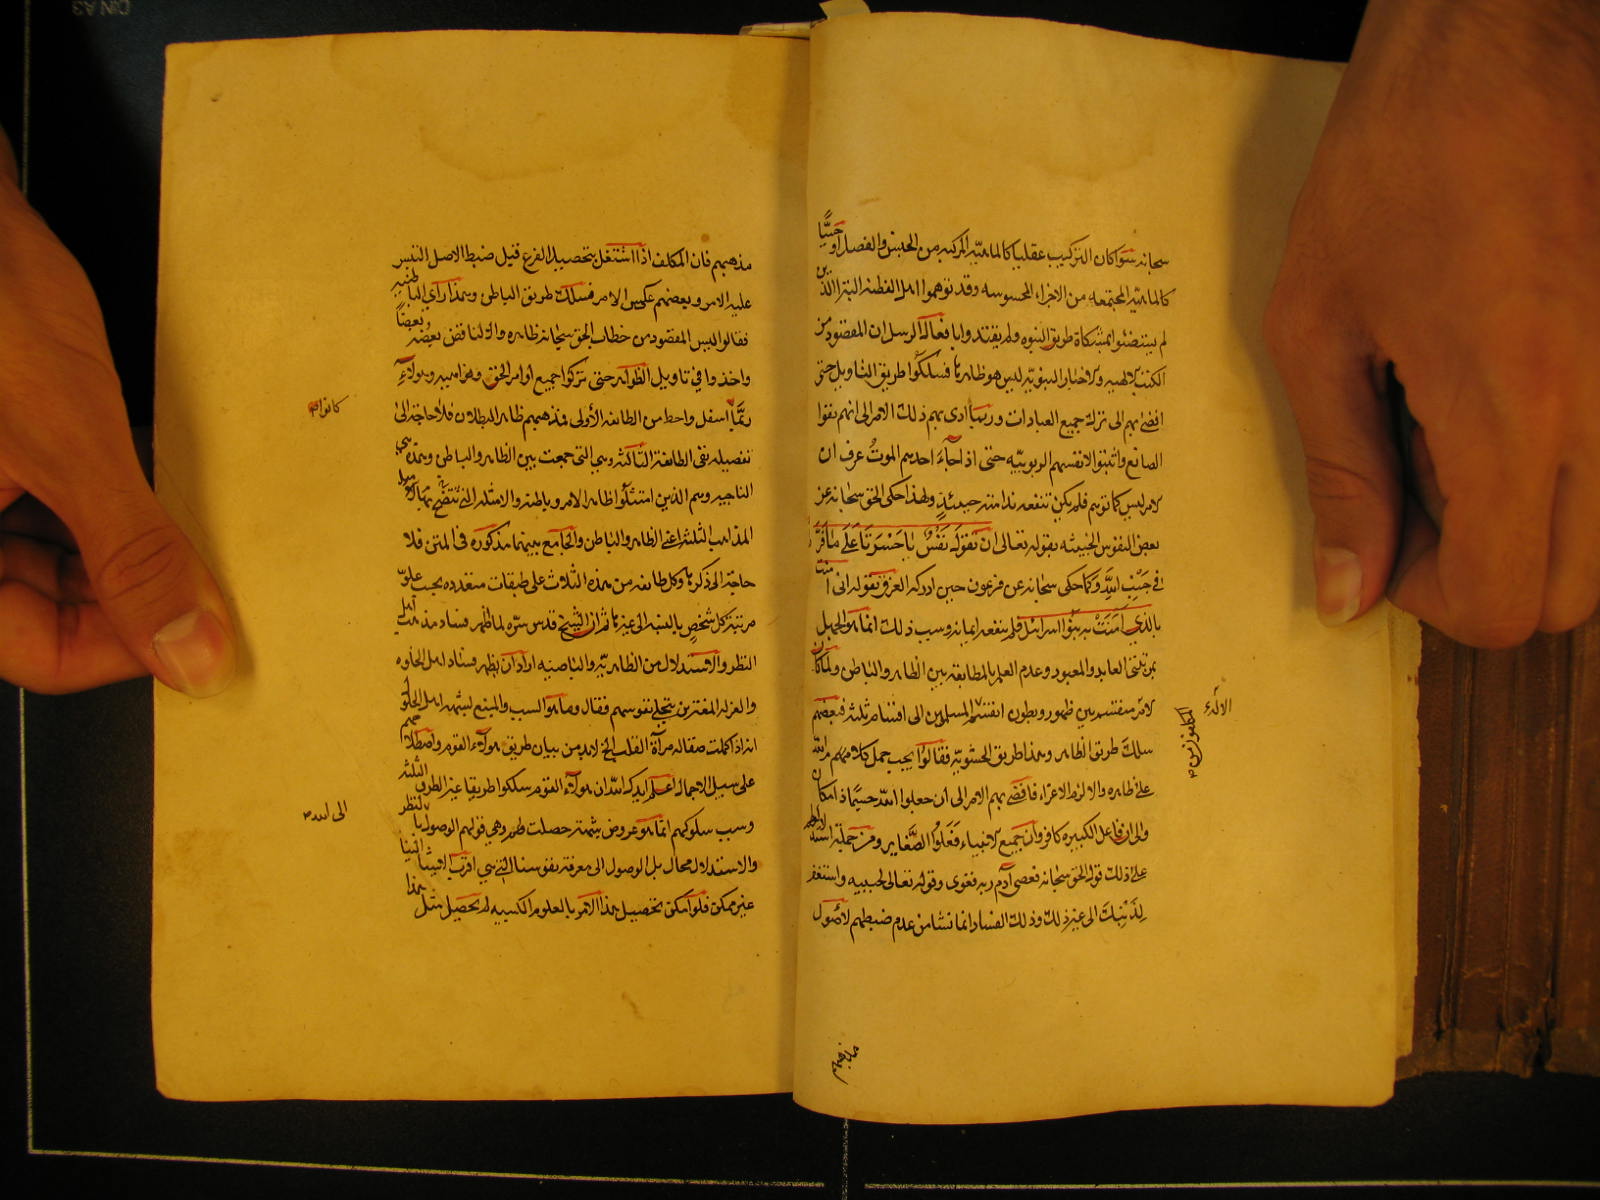 سبحانه سواء كان التركيب عقليا كالماهية المركبة من الجنس والفصل او حسيًّا
كالماهية المجتمعة من الاجزاء المحسوسه وقد توهموا اهل الفطنة البتراء الذين
لم يستضئوا بمشكاة طريق النبوه ولم يقتدوا بافعال الرسل ان المقصود من
الكتب الالهيه والاخبار النبويّة ليس هو ظاهرها فسلكوا طريق التاويل حتى
افضى بهم الى ترك جميع العبادات وربما ادى بهم ذلك الامر الى انهم نفوا
الصانع واثبتوا لانفسهم الربوبيّه حتى اذا جآءَ احدهم الموتُ عرف ان
الامر ليس كما توهم فلم يكن تنفعه ندامته حينئذٍ ولهذا حكى الحق سبحانه عن
بعض النفوس الخبيثه بقوله تعالى ان تقول نفسٌ يا حسرتا على ما فرّطت
في جنب الله وكما حكى سبحانه عن فرعون حين ادركه الغرق بقوله انى آمنت
بالذي آمنت به بنوا اسرائيل فلم ينفعه ايمانه وسبب ذلك انما هو الجهل
بمرتبتى العابد والمعبود وعدم العلم بالمطابقه بين الظاهر والباطن ولما كان
الامر منقسم بين ظهور وبطون انقسم المسلمون الى اقسام ثلثه فبعضهم
سلك طريق الظاهر وهذا طريق الحشويّه فقالوا يجب حمل كلامهم
على ظاهره والا لزم الاغراء فافضى بهم الامر الى ان جعلوا الله جسمًا ذا مكان
والى ان فاعل الكبيره كافر وان جميع الانبياء فعلوا الصغاير ومن جملة
على ذلك قول الحق سبحانه فعصى آدم ربه فغوى وقوله تعالى لحبيبه واستغفر
لذنبك الى غير ذلك وذلك الفساد انما نشا من عدم ضبطهم لاصول
مذهبهم فان المكلف اذا اشتغل بتحصيل الفرع قبل ضبط الاصل التبس
عليه الامر وبعضهم عكس الامر فسلك طريق الباطن وهذا راى الباطنيه
فقالوا ليس المقصود من خطاب الحق سبحانه ظاهره والا لناقض بعضه بعضًا
واخذوا في تاويل الظواهر حتى تركوا جميع اوامر الحق ونواهيه وهولآءِ
ربّما اسفل واحط من الطائفه الأولى ومذهبهم ظاهر البطلان فلا حاجة الى
تفصيله بقى الطائفة الثالثه وهي التى جمعت بين الظاهر والباطن وهذه هي
الناجيه وهم الذين امتثلوا ظاهر الامر وباطنه والامثله التى تتضح بها
المذاهب الثلثه اعنى الظاهر والباطن والجامع بينهما مذكوره فى المتن فلا
حاجة الى ذكرها وكل طائفه من هذه الثلاث على طبقات متعدده بحسب علوّ
مرتبة كل شخص بالنسبة الى غيره ثم ان الشيخ قدس سره لما اظهر فساد مذهب اهل
النظر والاستدلال من الظاهريّه والباطنيه اراد ان يظهر فساد اهل الخلوه
والعزله المغترين بتجلى نفوسهم فقال وما هو السبب والمنبع لشبهة اهل الخلوه
انه اذا كملت صقاله مرآة القلب الخ لابد من بيان طريق هولآء القوم واصطلاحهم
على سبيل الاجمال اعلم ايدك الله ان هولآء القوم سلكوا طريقا غير الطرق الثلثه
وسبب سلوكهم انما هو عروض شبهة حصلت لهم وهي قولهم الوصول بالنظر
والاستدلال محال بل الوصول الى معرفة نفوسنا التى هى اقرب الاشيا الينا
غير ممكن فلو امكن تحصيل هذا الامر بالعلوم الكسبيه لم يحصل مثل هذا
كانوا
الى الله